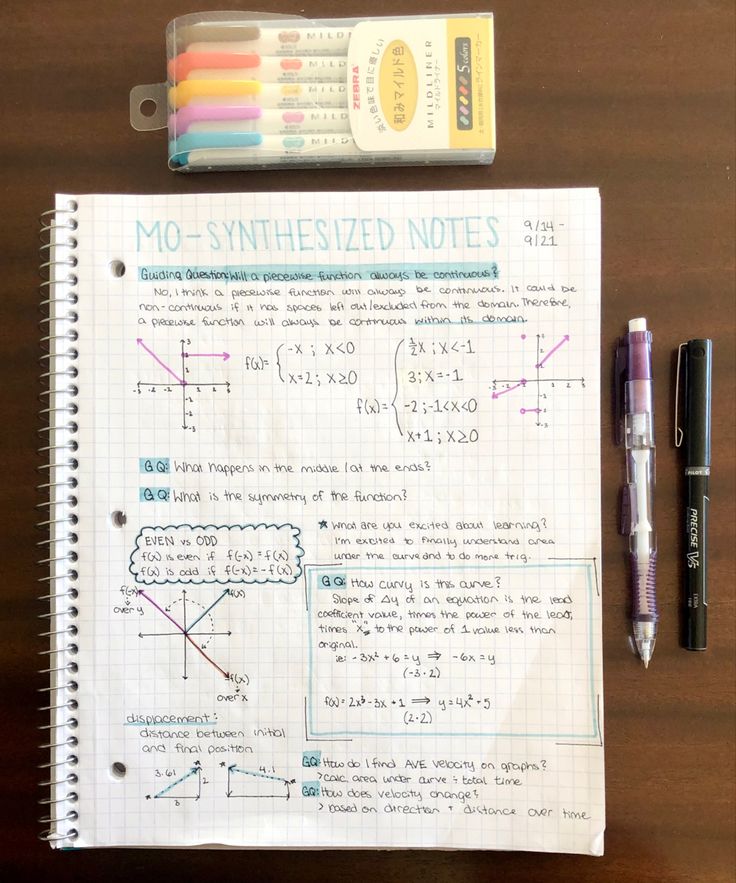 MILD
MILD
MILD
MILD
MILDL
ZEBRA
淡い色味で目に優しい
和みマイルド色
MILDLINER
マイルドライナー
5 colors
ラインマーカー
MO-SYNTHESIZED NOTES
9/14 -
9/21
Guiding Question: Will a piecewise function always be continuous?
No, I think a piecewise function will always be continuous. It could be
non-continuous if it has spaces left out/excluded from the domain. Therefore,
a piecewise function will always be continuous within its domain.
-3 -2 -1 1 2 3
3
2
1
-1
-2
-3
f(x)= { -x ; x<0
x=2 ; x≥0
f(x)= { ½x ; x<-1
3 ; x=-1
-2 ; -1<x<0
x+1 ; x≥0
-3 -2 -1 1 2 3
3
2
1
-1
-2
-3
GQ: What happens in the middle / at the ends?
GQ: What is the symmetry of the function?
EVEN vs ODD
f(x) is even if f(-x) = f(x)
f(x) is odd if f(-x) = -f(x)
★ What are you excited about learning?
I'm excited to finally understand area
under the curve and to do more trig.
f(-x)
over y
f(x)
-f(x)
over x
GQ: How curvy is this curve?
Slope of Δy of an equation is the lead
coefficient value, times the power of the lead,
times "x" to the power of 1 value less than
original.
ie: -3x² + 6 = y ⇒ -6x = y
(-3·2)
f(x) = 2x³ - 3x + 1 ⇒ y = 4x² - 5
(2·2)
displacement:
distance between initial
and final position
3.61
2
3
4.1
GQ: How do I find AVE velocity on graphs?
> calc area under curve ÷ total time
GQ: How does velocity change?
> based on direction + distance over time
PILOT
PRECISE V5
EXTRA
FINE